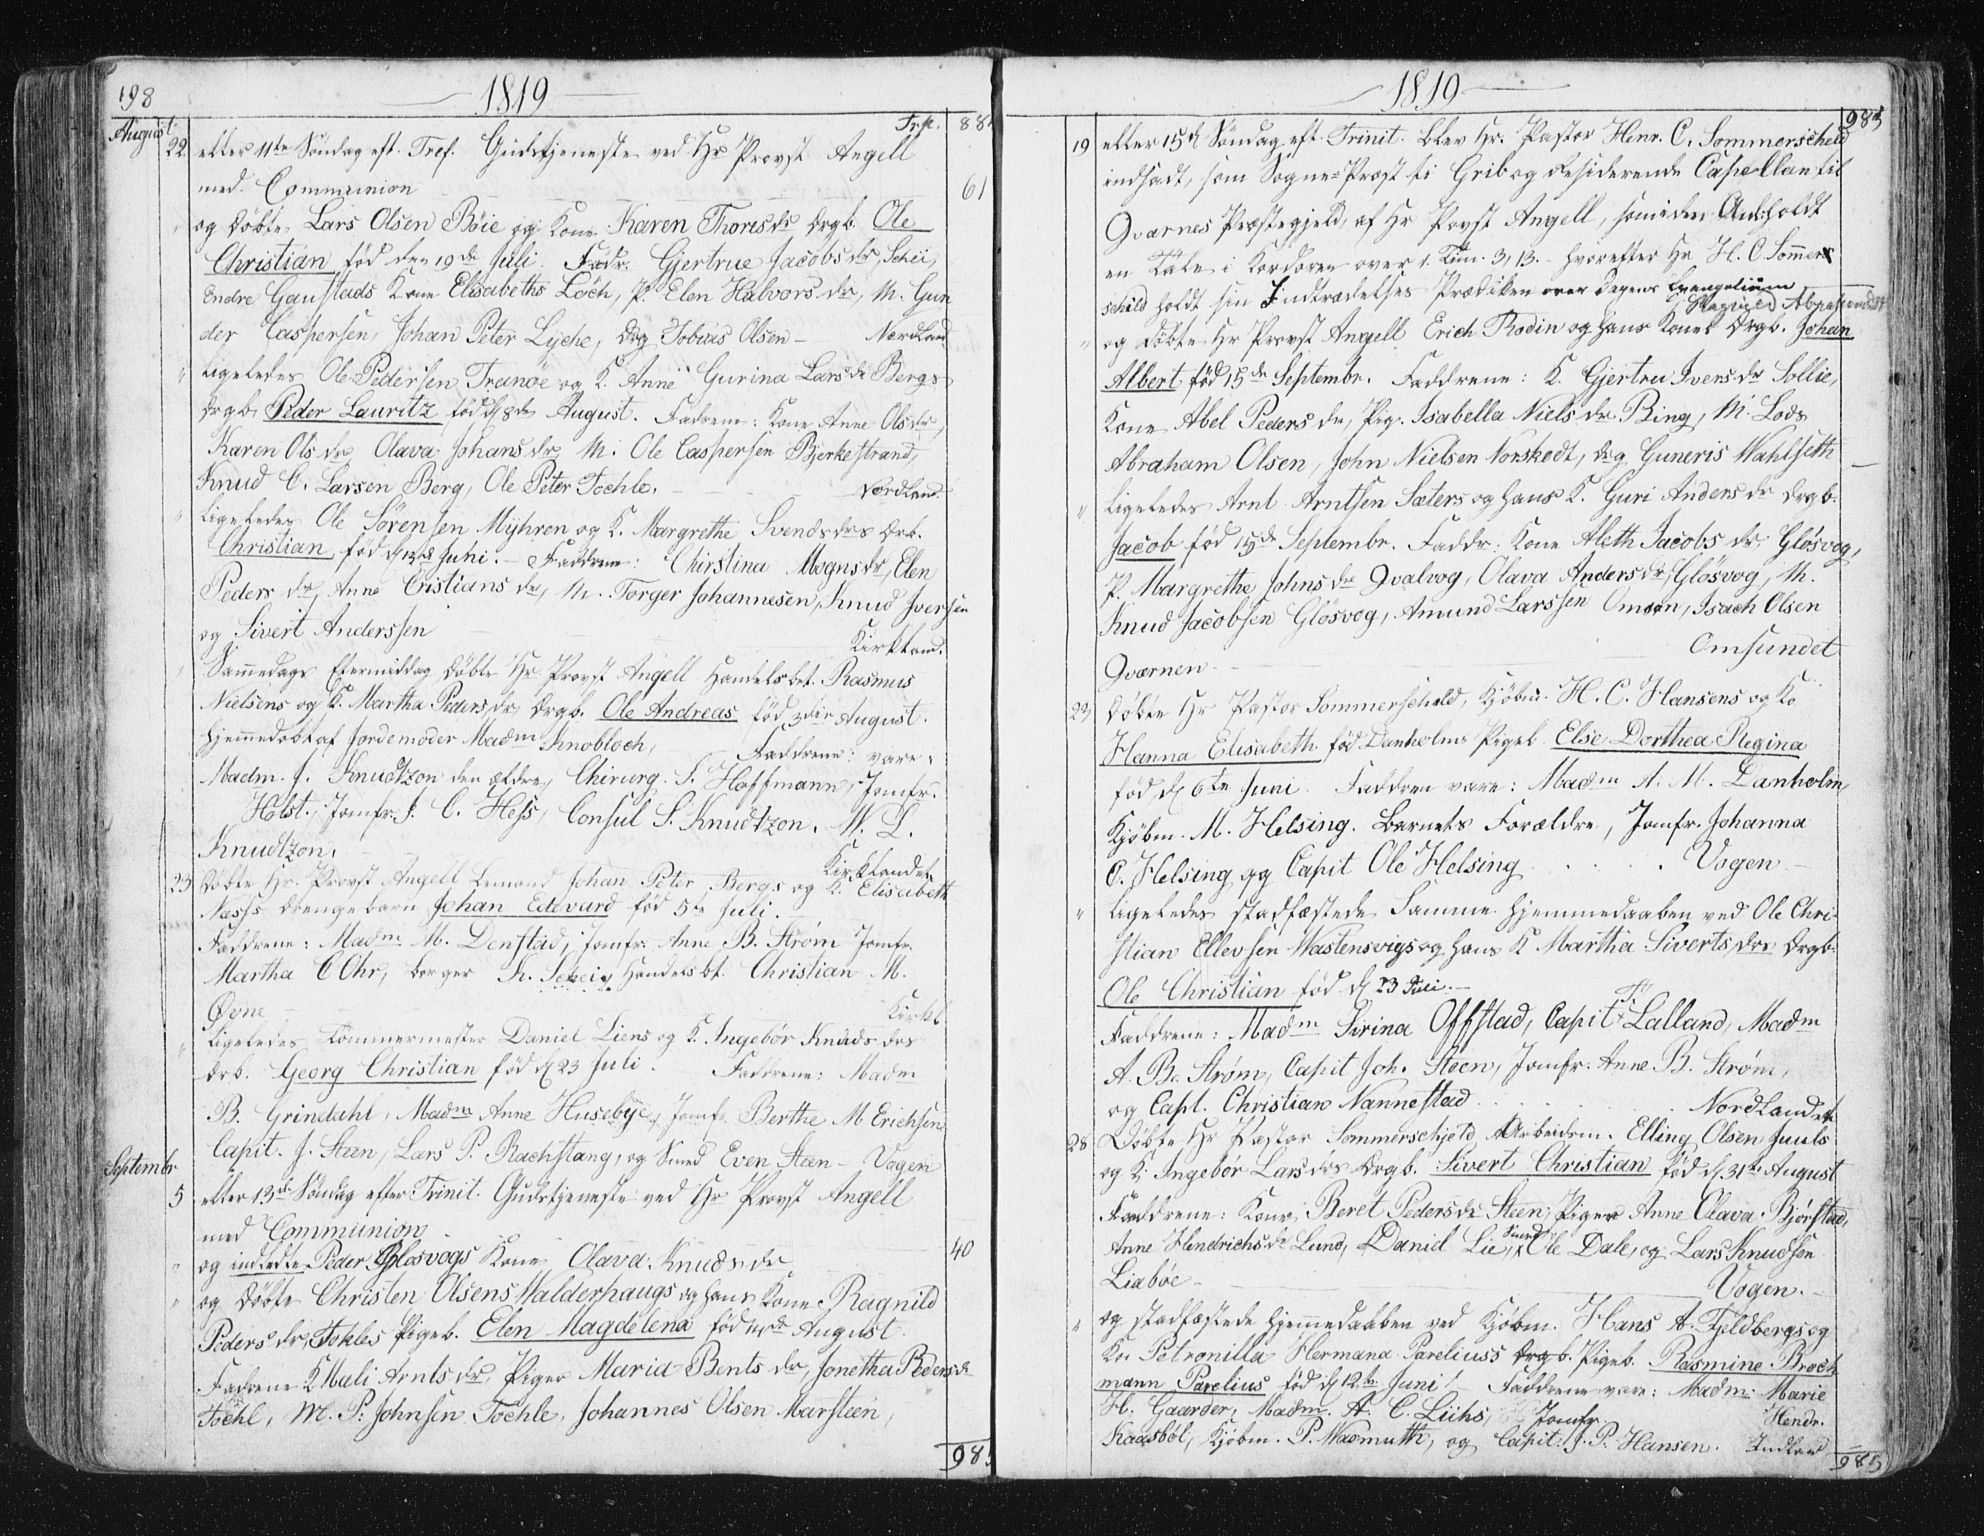 198
1819
August
Trsp. 88
22 eller 11te Söndag eft. Tref. Gudstjeneste ved Hr Provst Angell
med Communion
61
og döbte Lars Olsen Böie og Kone Karen Thoresdr Drgb. Ole
Christian föd den 19de Juli. Fadr. Gjertrue Jacobsdr, Schei,
Endre Gaustads Kone Elisabeths Loch, P. Elen Halvors dr, M. Gun
der Caspersen, Johan Peter Lyche, Drg Tobias Olsen – Nordland
" Ligeledes Ole Pedersen Tranöe og K. Anne Gurina Larsdr Bergs
Drgb. Peder Lauritz föd d 8de August. Fadrene: Kone Anne Olsdr,
Karen Ols dr Olava Johansdr M. Ole Caspersen Bjerkestrand,
Knud C. Larsen Berg, Ole Peter Tochle. Nordland.
" Ligeledes Ole Sörensen Myhren og K. Margrethe Svendsdrs Drb.
Christian föd d 12de Juni. – Faddrene: Chirstina Mognsdr, Elen
Peders dr, Anne Cristians dr, M. Torger Johannesen, Knud Iversen
og Sivert Anderssen
Kirkland.
" Sammedags Eftermiddag döbte Hr Provst Angell Handelsbet. Rasmus
Nielsens og K. Martha Pedersdr Drgb. Ole Andreas föd 3die August.
hjemmedöbt af Jordemoder Madm Knobloch, Faddrene: vare:
Madm. J. Knudtzon den ældre, Chirurg. S. Hoffmann, Jomfr.
Holst., Jomfr. J. C. Hess, Consul S. Knudtzon. W. L.
Knudtzon.
Kirklandet
23 döbte Hr. Provst Angell Lemand Johan Peter Bergs og K. Elisabeth
Næsss Drengebarn Johan Edevard föd 5te Juli.
Faddrene: Madm M. Donstad, Jomfr. Anne B. Ström Jomfr.
Martha C Ohr, borger K. Schei, Handelsbt. Christian M.
Öyne
Kirkl
" Ligeledes Tömmermester Daniel Liens og K. Ingebör Knuds drs
Drb. Georg Christian föd d 23 Juli. Faddrene: Madm
B. Grindahl, Madm Anne Husebye, Jomfr. Berthe M Erichsen
Capit. J. Steen, Lars P. Rachstang, og Smed Even Steen – Vogen
Septembr
5 eller 13de Söndag efter Trinit. Gudstjeneste ved Hr Provst Angell
med Communion
40
" og indledte Peder Glosvogs Kone Olava Knudsdr
" og döbte Christen Olsens Walderhaugs og hans Kone Ragnild
Peders dr, Tokles Pigeb. Elen Magdelena föd 11de August.
Fadrene K Mali Arntsdr, Piger Maria Bents dr, Jonetha Pedersdr
Tochl, M. P. Johnsen Tochle, Johannes Olsen Marsteen,
985
1819
985
19 eller 15de Söndag eft. Trinit. blev Hr. Pastor Henr. C. Sommerscheld
indsadt, som Sogne-Præst til Grib og residerende Capellan til
Qvernes Præstegjeld, af Hr Provst Angell, som i den Anl: holdt
en Tale i Kordoren over 1. Tim. 3, 13. – hvorefter Hr H. C Sommer
schild holdt sin Indtrædelses Prædiken over Dagens Evangelium
Ragnild Abrahamsdr
" og döbte Hr Provst Angell Erich Rodin og hans Kones Drgb. Johan
Albert föd 15de Septembr. Faddrene: K. Gjertru Ivers dr Sollie,
Kone Abel Peders dr, Pig. Isabella Niels dr Ring, M. Lods
Abraham Olsen, John Nielsen Norskodt, drg Guneris Wahlseth –
" Ligeledes Arnt Arntsen Sæters og hans K. Guri Anders dr Drgb.
Jacob föd 15de Septembr. Faddr. Kone Aleth Jacobs dr Glösvog,
P. Margrethe Johns dr Qvalvog, Olava Andersdr, Glösvog, M.
Knud Jacobsen Glösvog, Amund Larssen Omsen, Isach Olsen
Omsundet
Qværnen
23 döbte Hr Pastor Sommerscheld, Kjöbm. H. C. Hansens og Ko
Hanna Elisabeth föd Danholms Pigeb. Else Dorthea Regina
föd d 6te Juni. Faddren vare: Madm A. M. Danholm,
Kjöbm. M. Helsing. Barnets Forældre, Jomfr. Johanna
C. Helsing og Capit Ole Helsing . . . . Vogen –
" Ligeledes stadfæstede Samme hjemmedaaben ved Ole Chri-
stian Ellevsen Wastensvigs og hans K Martha Siverts drs Drgb.
Ole Christian föd d 23 Juli. –
Faddrene: Madm Sirina Offstad, Capit Lalland, Madm
A. B. Ström, Capit Joh. Steen, Jomfr. Anne B. Ström,
og Capt. Christian Nannestad . . . . Nordlandet
28 Döbte Hr Pastor Sommerschjeld Arbeidsm. Elling Olsen Juuls
og K. Ingebör Lars drs Drgb. Sivert Christian föd d 31te August
Faddrene: Kone Beret Pedersdr Steen, Piger Anne Olava Björstad,
Anne Hendrichsdr Lund, Daniel Lie, Smed Ole Dale, og Lars Knudsen
Liaböe –
Vogen. –
" og stadfæstede hjemmedaaben ved Kjöbm. Hans A. Fjeldbergs og
Ko. Petronilla Hermana Pareliuss Drgb. Pigeb. Rasmine Broch
mann Parelius föd d 12te Juni. Faddrene vare: Madm. Marie
H. Gaarder, Madm. A. C. Lühs, Jomfr. Hendr.
Kaasböl, Kjöbm. P. Wasmuth, og Capit: J. P. Hansen. Indland
985